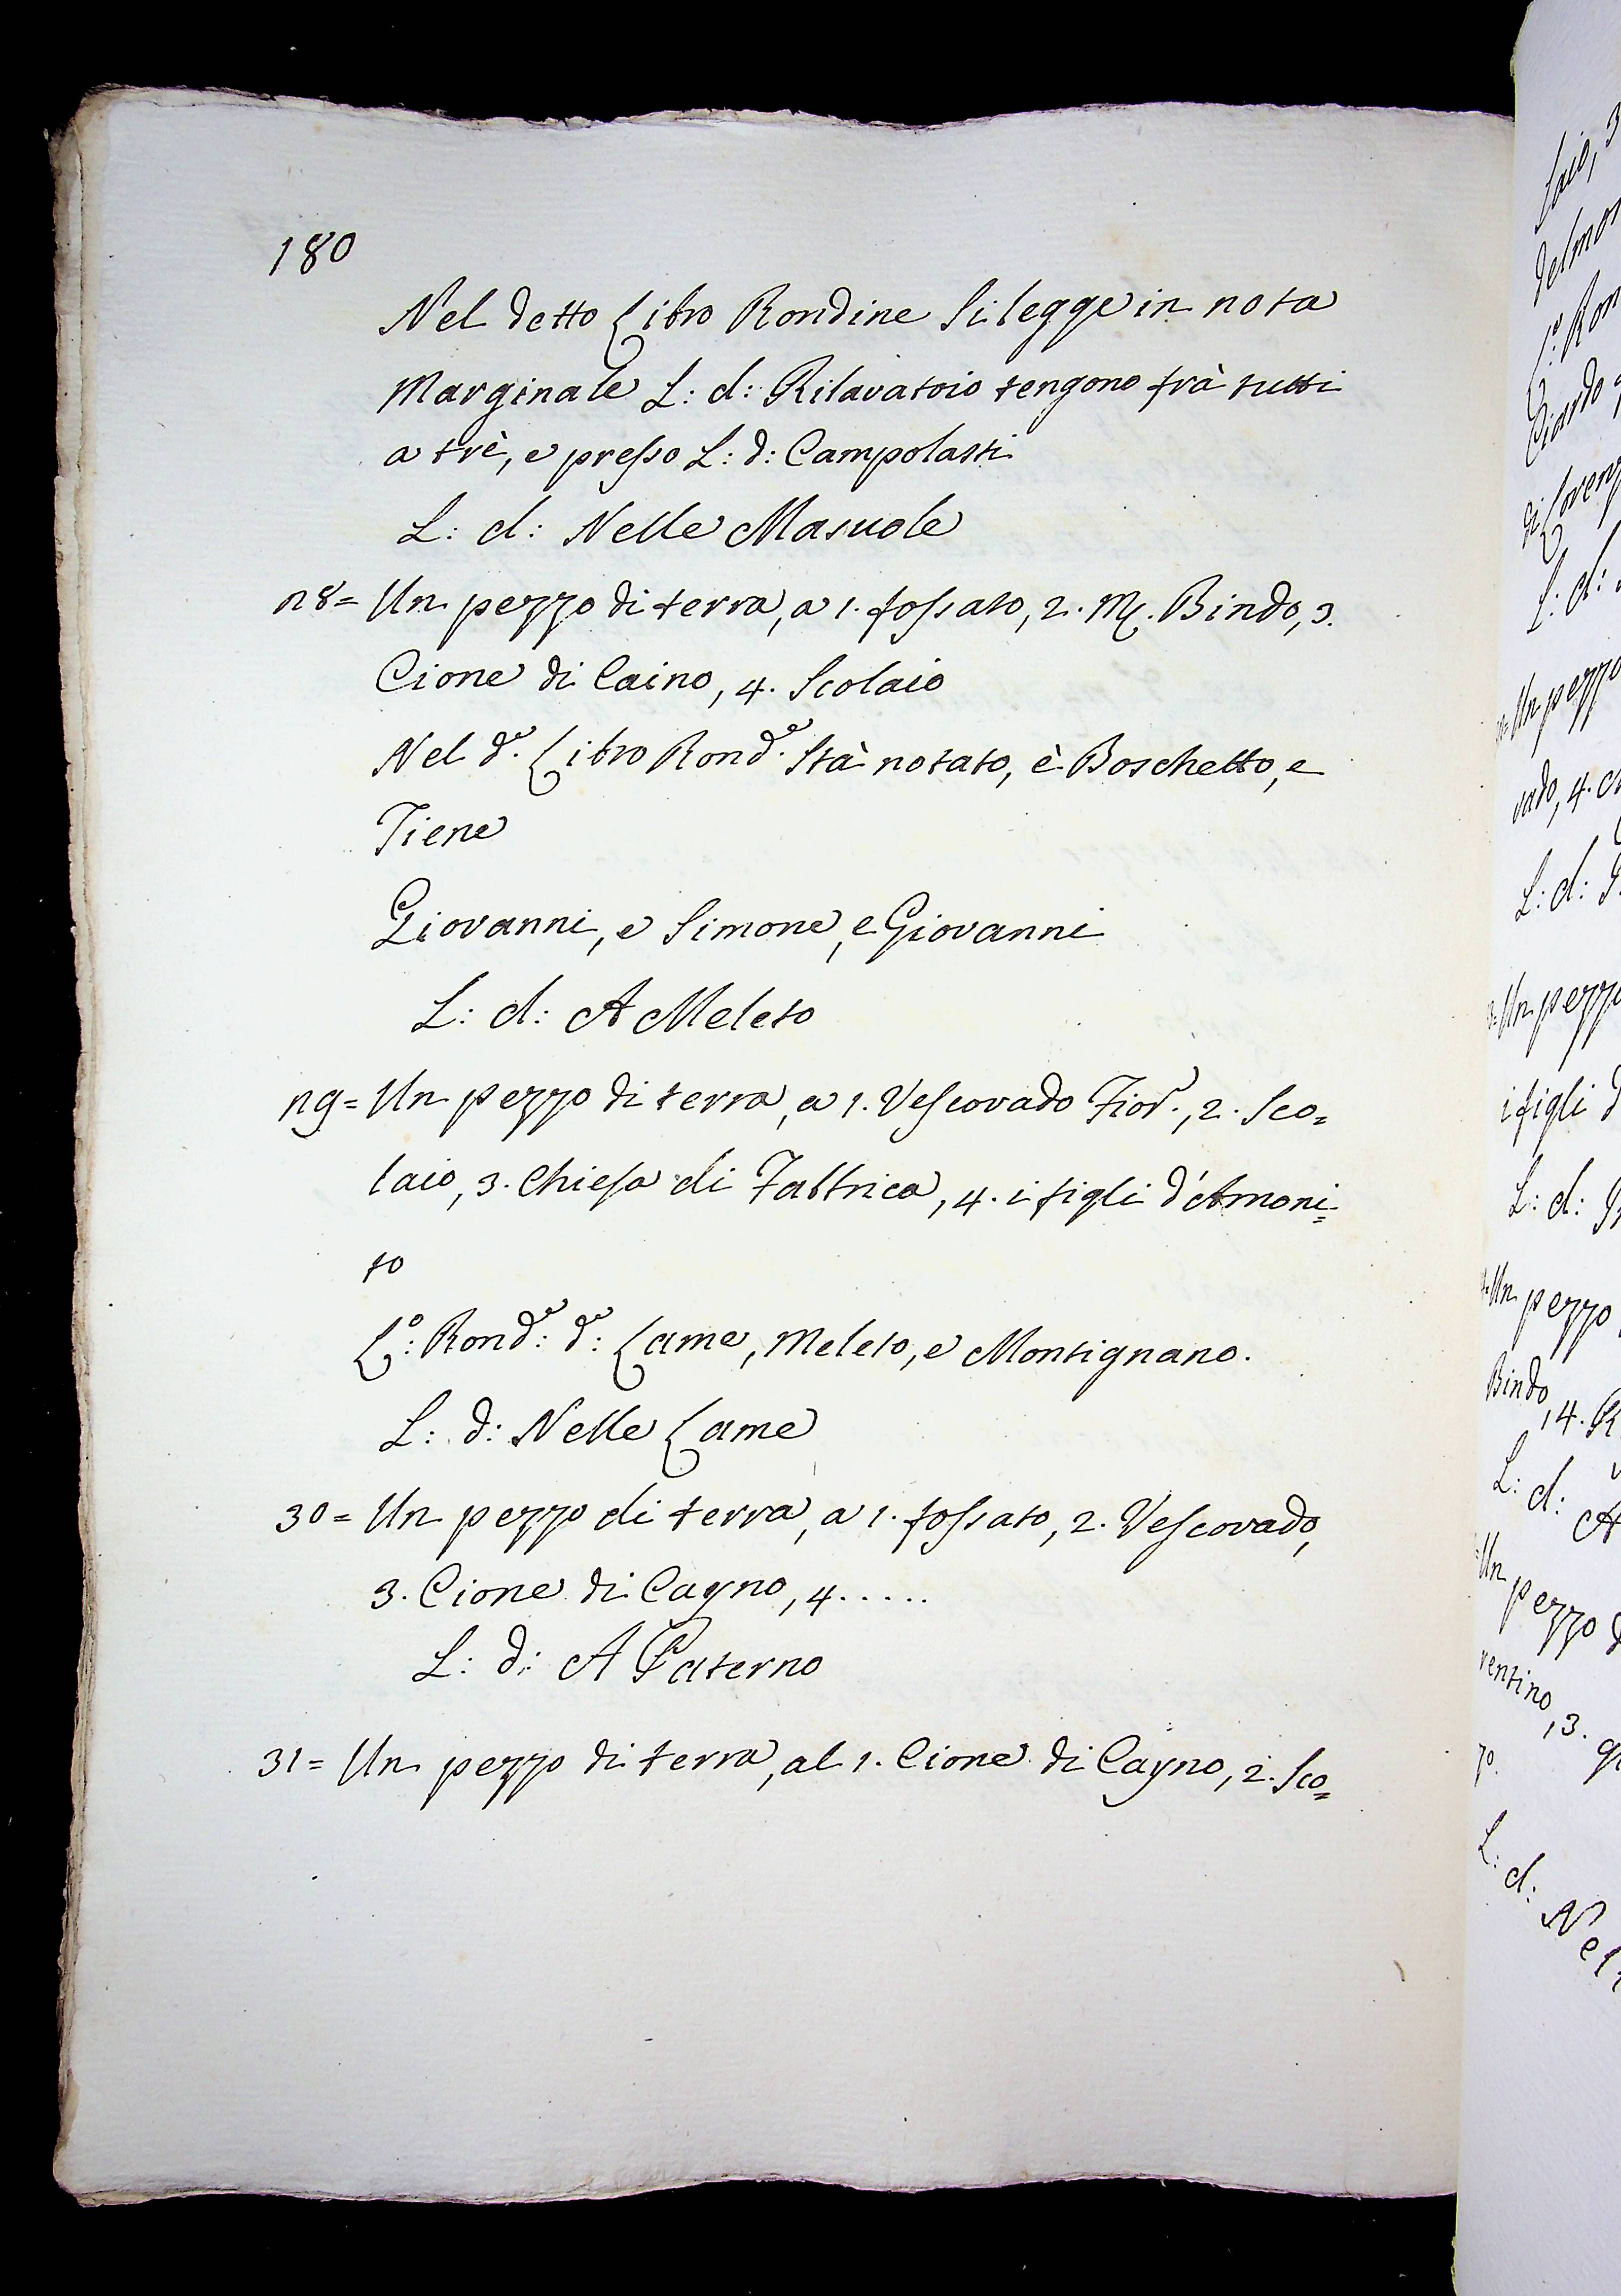 180
Nel detto Libro Rondine si legge in nota
Marginale L: d: Rilavatoio tengono frà tutti
a trè, e presso L: d: Campolasti
L: d: Nelle Masuole
28= Un pezzo di terra, a 1. fossato, 2. M. Bindo, 3.
Cione di Caino, 4. Scolaio
Nel d.º Libro Rond.º Stà notato, è Boschetto, e
Tiene
Giovanni, e Simone, e Giovanni
L: d: A Meleto
29= Un pezzo di terra, a 1. Vescovado Fior.º, 2. Sco=
laio, 3. Chiesa di Fabbrica, 4. i figli d'Amoni=
to
L.º: Rond.º: d.º: Lame, Meleto, e Montignano.
L: d: Nelle Lame
30= Un pezzo di terra, a 1. fossato, 2. Vescovado,
3. Cione di Cayno, 4.....
L: d: A Paterno
31= Un pezzo di terra, al 1. Cione di Cayno, 2. Sco=
laio, 3
del mon
L.º: Ron
Ciardo
di Lorenz
L: d:
Un pezzo
vado, 4.
L: d:
Un pezzo
i figli d
L: d:
Un pezzo
Bindo, 4.
L: d: A
Un pezzo d
rentino, 3.
zo.
L: d: Nel